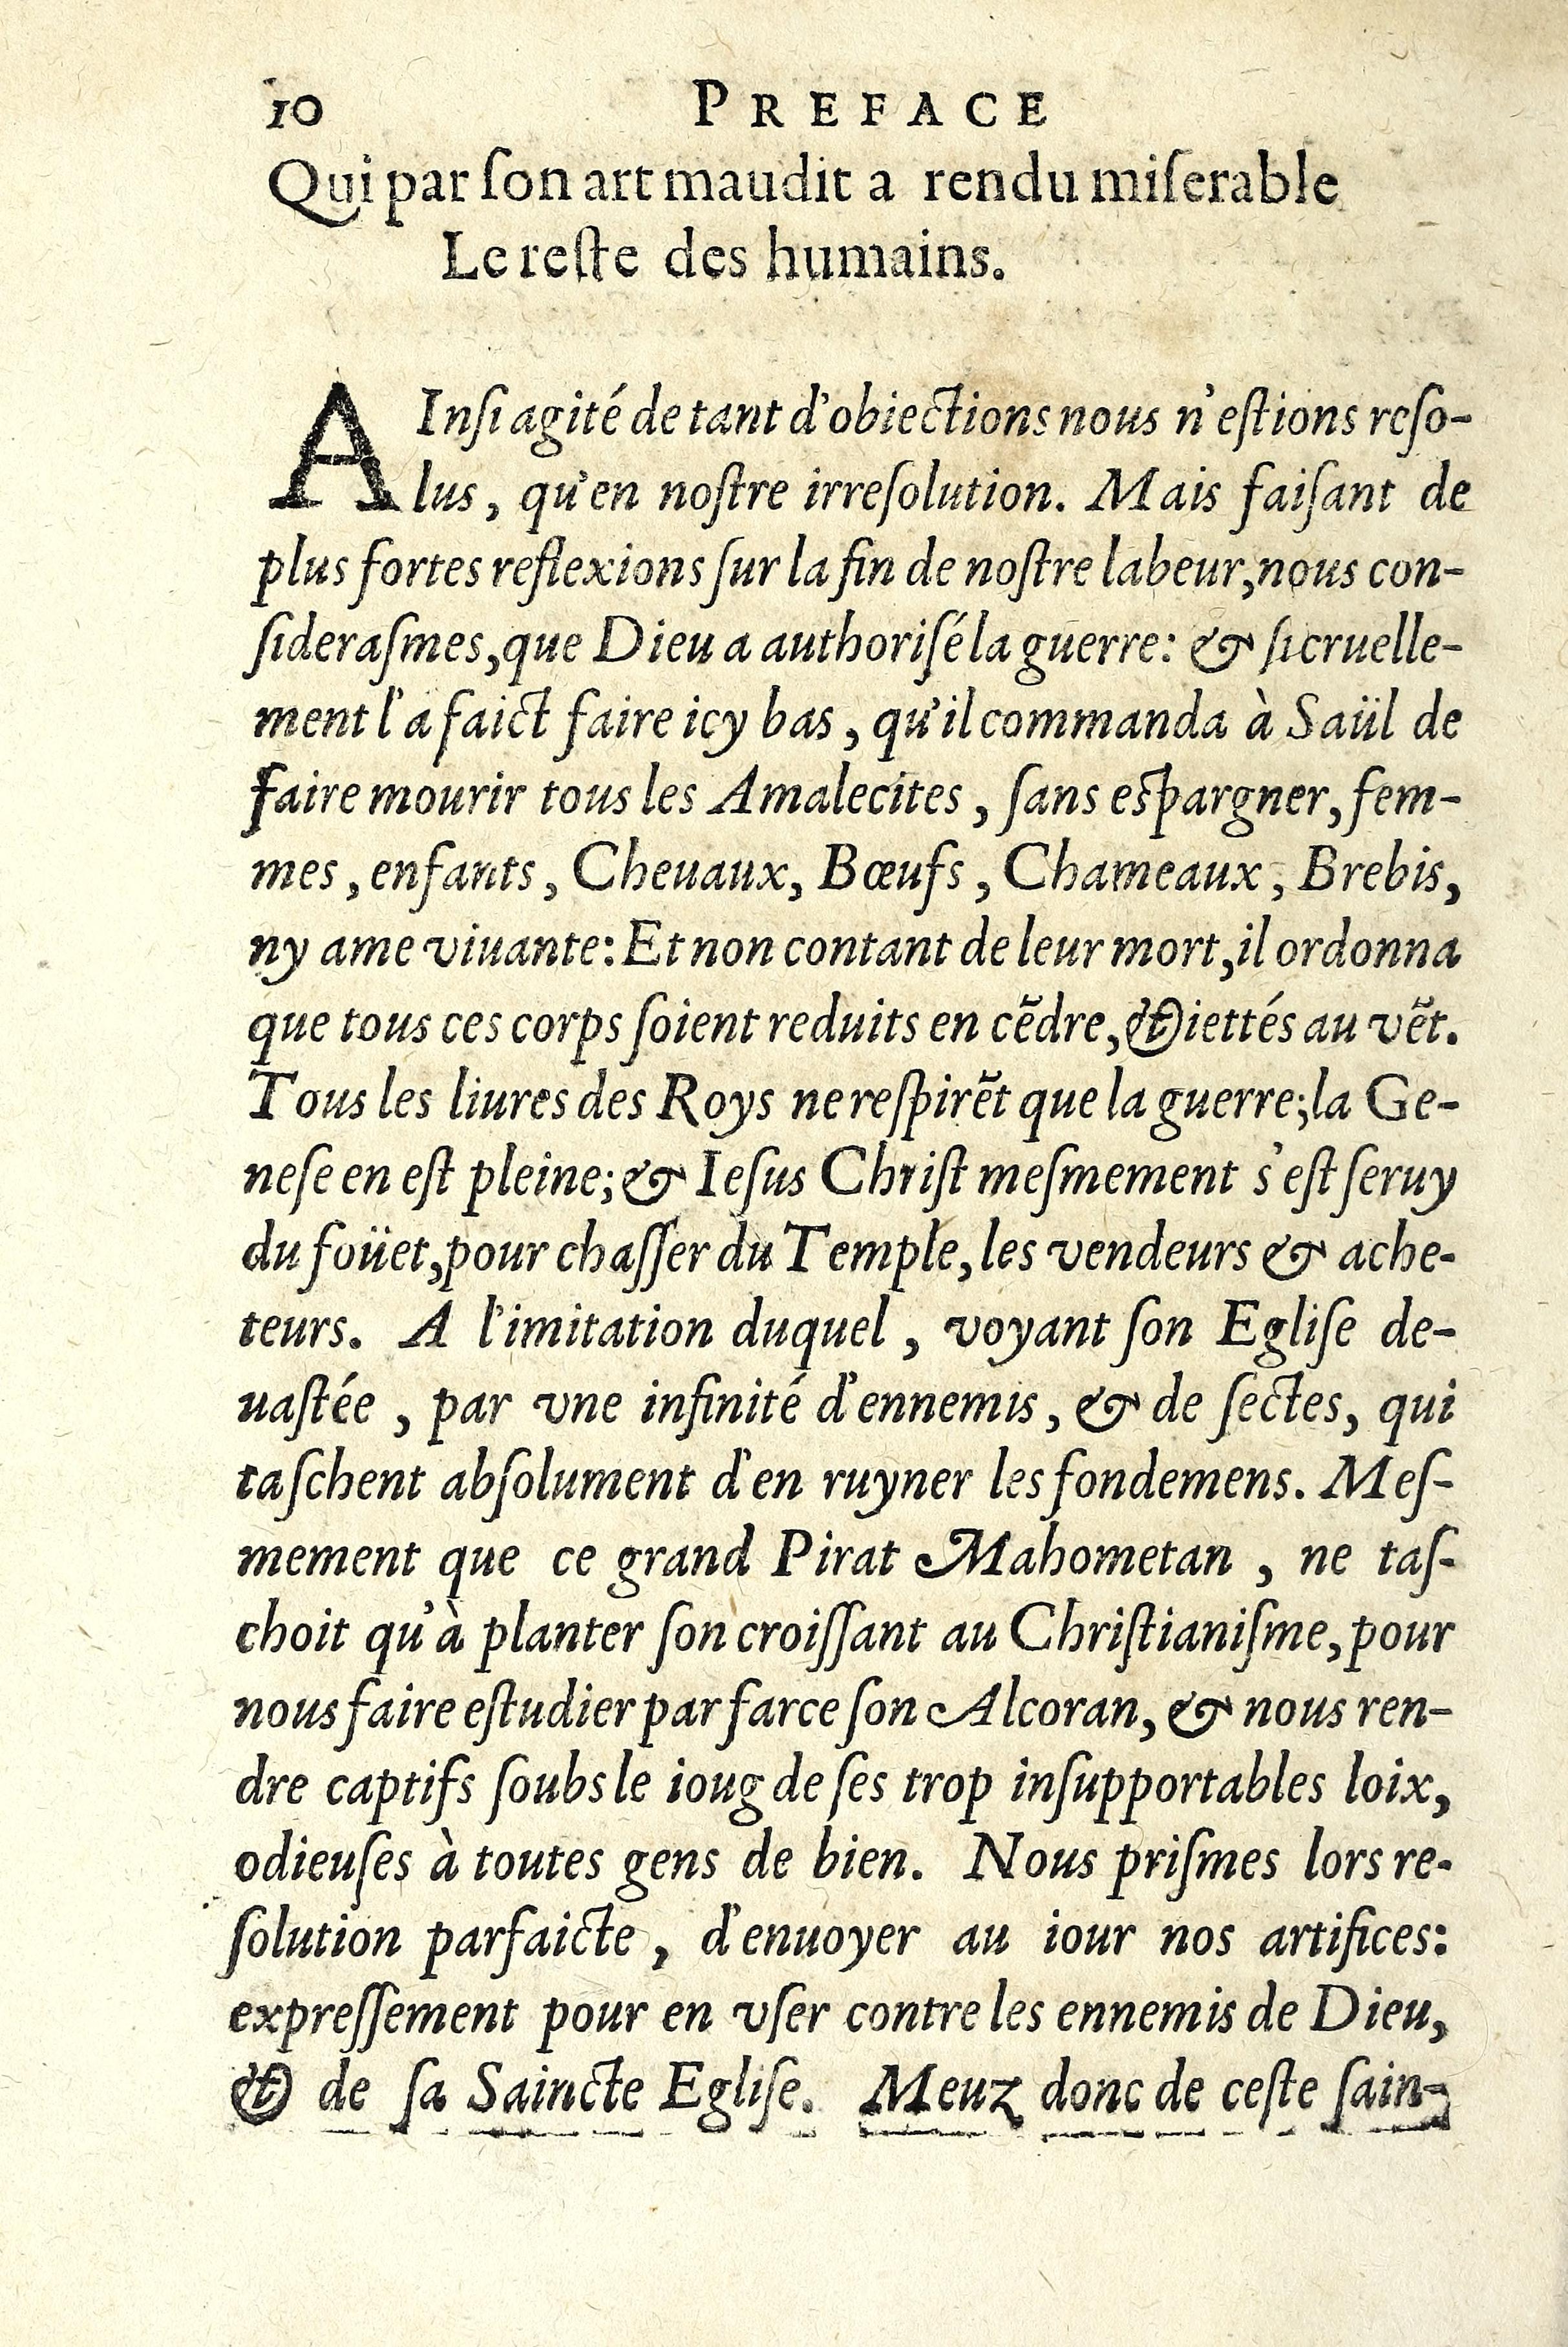 10 PREFACE
Qui par ſon art maudit a rendu miſerable
Le reſte des humains.
AInſi agité de tant d'obiections nous n'eſtions reſo-
lus, qu'en noſtre irreſolution. Mais faiſant de
plus fortes reflexions ſur la fin de noſtre labeur, nous con-
ſideraſmes, que Dieu a authoriſé la guerre: & ſi cruelle-
ment l'a faict faire icy bas, qu'il commanda à Saül de
faire mourir tous les Amalecites, ſans eſpargner, fem-
mes, enfants, Cheuaux, Bœufs, Chameaux, Brebis,
ny ame viuante: Et non contant de leur mort, il ordonna
que tous ces corps ſoient reduits en cẽdre, & iettés au vẽt.
Tous les liures des Roys ne reſpirẽt que la guerre; la Ge-
neſe en eſt pleine; & Ieſus Chriſt meſmement s'eſt ſeruy
du foüet, pour chaſſer du Temple, les vendeurs & ache-
teurs. A l'imitation duquel, voyant ſon Egliſe de-
uaſtée, par vne infinité d'ennemis, & de ſectes, qui
taſchent abſolument d'en ruyner les fondemens. Meſ-
mement que ce grand Pirat Mahometan, ne taſ-
choit qu'à planter ſon croiſſant au Chriſtianiſme, pour
nous faire eſtudier par farce ſon Alcoran, & nous ren-
dre captifs ſoubs le ioug de ſes trop inſupportables loix,
odieuſes à toutes gens de bien. Nous priſmes lors re-
ſolution parfaicte, d'enuoyer au iour nos artifices:
expreſſement pour en vſer contre les ennemis de Dieu,
& de ſa Saincte Egliſe. Meuz donc de ceſte ſain-